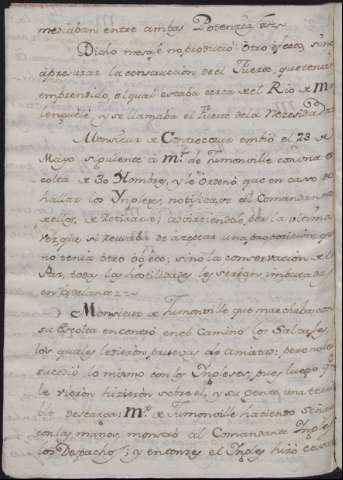 mediaban entre ambas Potencias
Dicho mensaje no produció otro efecto, sino
apresurar la construccion de el Fuerte, que tenian
emprendido, el qual estaba cerca de el Rio de
lenguelé, y se llamaba el Fuerte de la Necesidad
Monsieur de Contrecoeur embió el 23 de
Mayo siguiente á Mr. de Jumonville con una es
colta de 30 Hombres, y le ordenó que en caso de
hallar los Yngleses, notificase al Comandante
de ellos, se retirase; advirtiendole por la ultima
vez que si reusaba de aceptar una proposicion que
no tenia otro objeto, sino la conservacion de la
Paz, todas las hostilidades les serian imputadas
en adelante
Monsieur de Jumonville que marchaba con
su Escolta encontró en el Camino los Salvajes,
los quales le dieron pruebas de amistad; pero no le
sucedió lo mismo con los Yngleses, pues luego que
le vieron hizieron sobre el, y su gente una terri
ble descarga; Mr. de Jumonville haciendo Señas
con las manos, mostró al Comandante Yngles
los Despachos; y entonces el Yngles hizó cesar